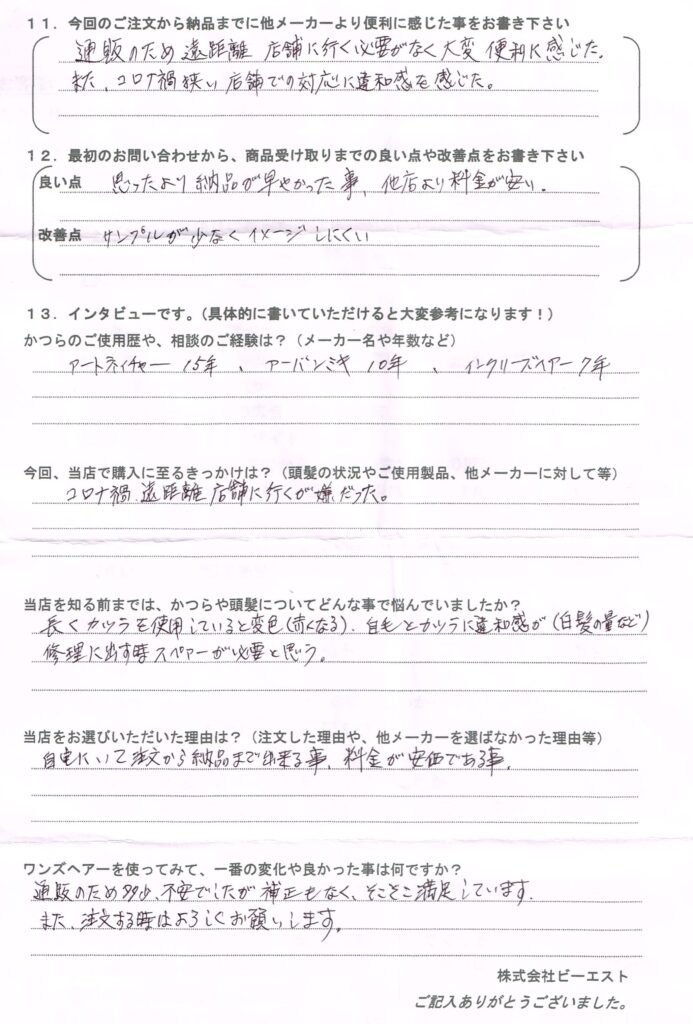 11．今回のご注文から納品までに他メーカーより便利に感じた事をお書き下さい
通販のため遠距離 店舗に行く必要がなく大変 便利に感じた.
また、コロナ禍 狭い店舗での対応に違和感を感じた。
12．最初のお問い合わせから、商品受け取りまでの良い点や改善点をお書き下さい
良い点 思ったより納品が早やかった事、他店より料金が安い.
改善点 サンプルが少なくイメージしにくい
13．インタビューです。（具体的に書いていただけると大変参考になります！）
かつらのご使用歴や、相談のご経験は？（メーカー名や年数など）
アートネイチャー 15年 、アーバンミキ 10年 、インクリーズヘアー 7年
今回、当店で購入に至るきっかけは？（頭髪の状況やご使用製品、他メーカーに対して等）
コロナ禍 遠距離 店舗に行くが嫌だった。
当店を知る前までは、かつらや頭髪についてどんな事で悩んでいましたか？
長くカツラを使用していると変色(赤くなる). 自毛とカツラに違和感が(白髪の量など)
修理に出す時スペアーが必要と思う。
当店をお選びいただいた理由は？（注文した理由や、他メーカーを選ばなかった理由等）
自宅にいて注文から納品まで出来る事、料金が安価である事.
ワンズヘアーを使ってみて、一番の変化や良かった事は何ですか？
通販のため多少、不安でしたが補正もなく、そこそこ満足しています.
また、注文する時はよろしくお願いします。
株式会社ビーエスト
ご記入ありがとうございました。